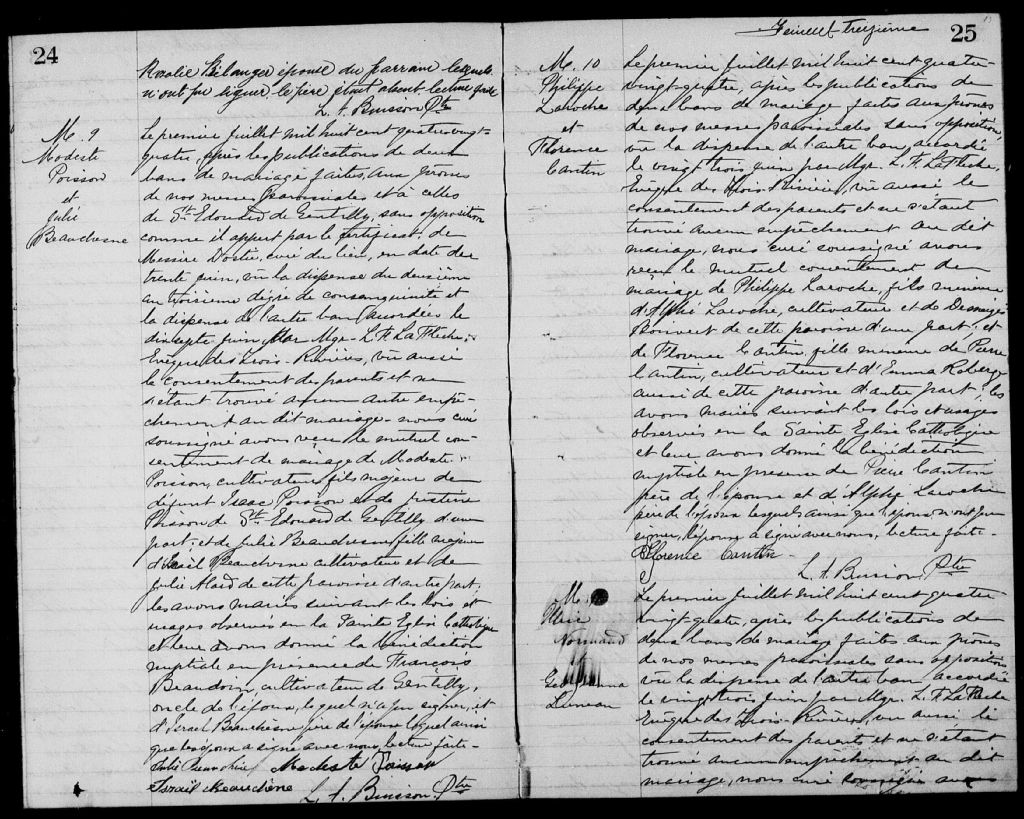 24
Rosalie Bélanger épouse du parrain lesquels
n'ont pu signer le père était absent lecture faite
L. A. Buisson Ptre
M. 9
Modeste
Poisson
et
Julie
Beauchesne
Le premier juillet mil huit cent quatre vingt-
quatre, après les publications de deux
bans de mariage faites aux prônes
de nos messes paroissiales et à celles
de St. Edouard de Gentilly, sans opposition
comme il appert par le certificat de
Messire Dostie, curé du lieu, en date du
trente juin, vû la dispense du deuxième
au troisième dégré de consanguinité et
la dispense de l'autre ban accordées le
dix sept juin par Mgr L. F. LaFleche,
Evêque des Trois-Rivières, vû aussi
le consentement des parents et ne
s'étant trouvé aucun autre empê-
chement au dit mariage nous curé
soussigné avons reçu le mutuel con-
sentement de mariage de Modeste
Poisson, cultivateur, fils majeur de
défunt Isaac Poisson et de
Poisson de St. Edouard de Gentilly d'une
part; et de Julie Beauchesne, fille majeure
d'Israël Beauchesne cultivateur et de
Julie Alard de cette paroisse d'autre part;
les avons mariés suivant les lois et
usages observés en la Sainte Eglise Catholique
et leur avons donné la bénédiction
nuptiale en présence de François
Beaudoin, cultivateur de Gentilly,
oncle de l'époux, lequel n'a pu signer, et
d'Israël Beauchesne père de l'épouse lequel ainsi
que les époux a signé avec nous, lecture faite-
Julie Beauchène Modeste Poisson
Israël Beauchène
L. A. Buisson Ptre
Feuillet treizième
25
13
M. 10
Philippe
Laroche
et
Florence
Cantin
Le premier juillet mil huit cent quatre-
vingt quatre, après les publications de
deux bans de mariage faites aux prônes
de nos messes paroissiales sans opposition,
vû la dispense de l'autre ban accordé
le vingt trois juin par Mgr. L. F. LaFleche,
Evêque des Trois-Rivières, vû aussi le
consentement des parents et ne s'étant
trouvé aucun empêchement au dit
mariage, nous curé soussigné avons
reçu le mutuel consentement de
mariage de Philippe Laroche, fils mineur
d'Alphé Laroche, cultivateur et de
de cette paroisse d'une part; et
de Florence Cantin, fille mineure de Pierre
Cantin, cultivateur et d'Emma Roberge
aussi de cette paroisse d'autre part; les
avons mariés suivant les lois et usages
observés en la Sainte Eglise Catholique
et leur avons donné la bénédiction
nuptiale en présence de Pierre Cantin
père de l'épouse et d'Alphé Laroche
père de l'époux lesquels ainsi que l'époux n'ont pu
signer, l'épouse a signé avec nous, lecture faite-
Florence Cantin
L. A. Buisson, Ptre
M.
Normand
Georgianna
Luneau
Le premier juillet mil huit cent quatre
vingt quatre, après les publications de
deux bans de mariage faites aux prônes
de nos messes paroissiales sans opposition
vû la dispense de l'autre ban accordée
le vingt trois juin par Mgr. L. F. LaFleche
Evêque des Trois-Rivières, vu aussi le
consentement des parents et ne s'étant
trouvé aucun empêchement au dit
mariage, nous curé soussigné avons